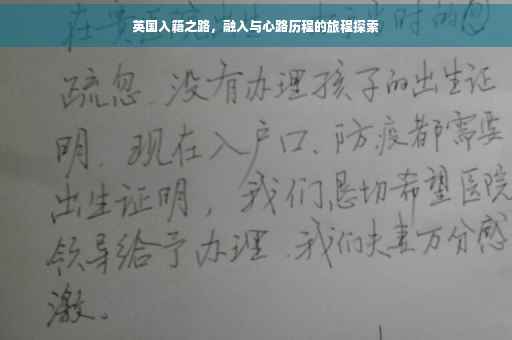 英国入籍之路，融入与心路历程的旅程探索
疏忽.没有办理孩子的出生证
明.现在入户口、防疫都需要
出生证明，我们恳切希望医院
领导给予办理.我们夫妻万分感
激。